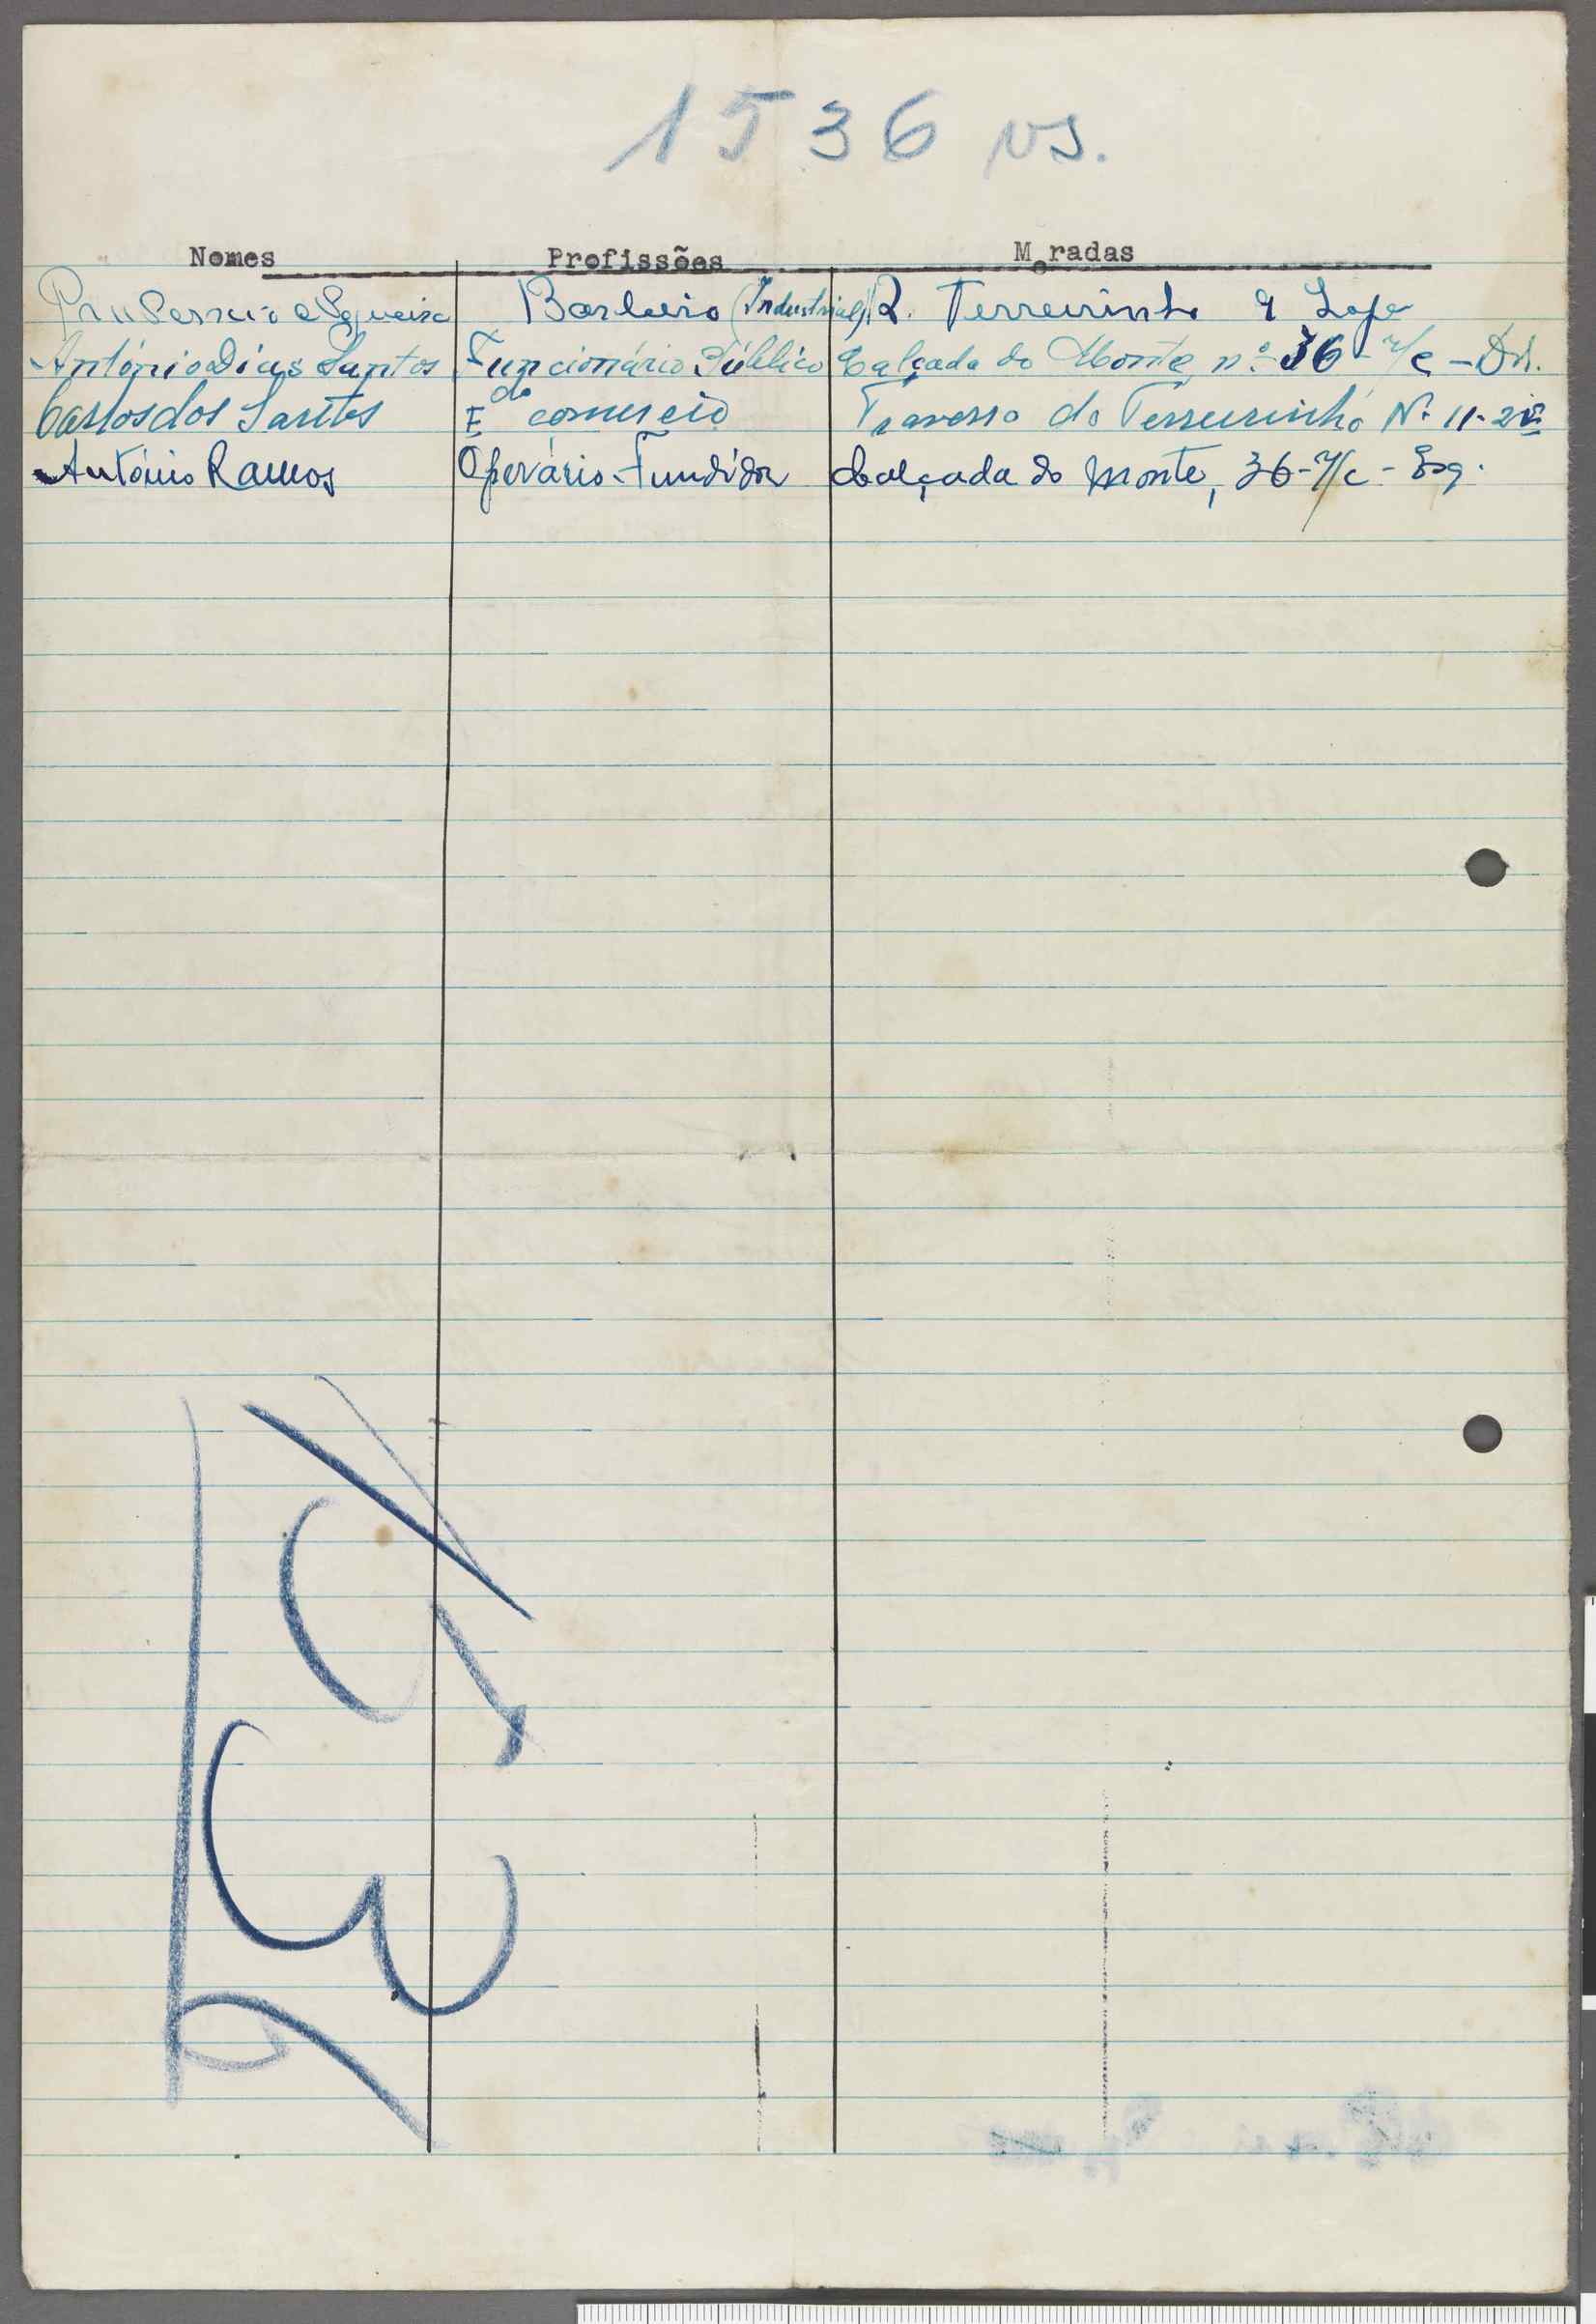 1536 vs.
Nomes Profissões Moradas
Barbeiro (Industrial) R. Terreirinho 9 Loja
António Dias Santos Funcionário Público Calçada do Monte nº 36 - r/c - Dt.
Carlos dos Santos E do comercio Travessa do Terreirinho Nº 11-2º
António Ramos Operário-Fundidor Calçada do Monte, 36-r/c - Esq.